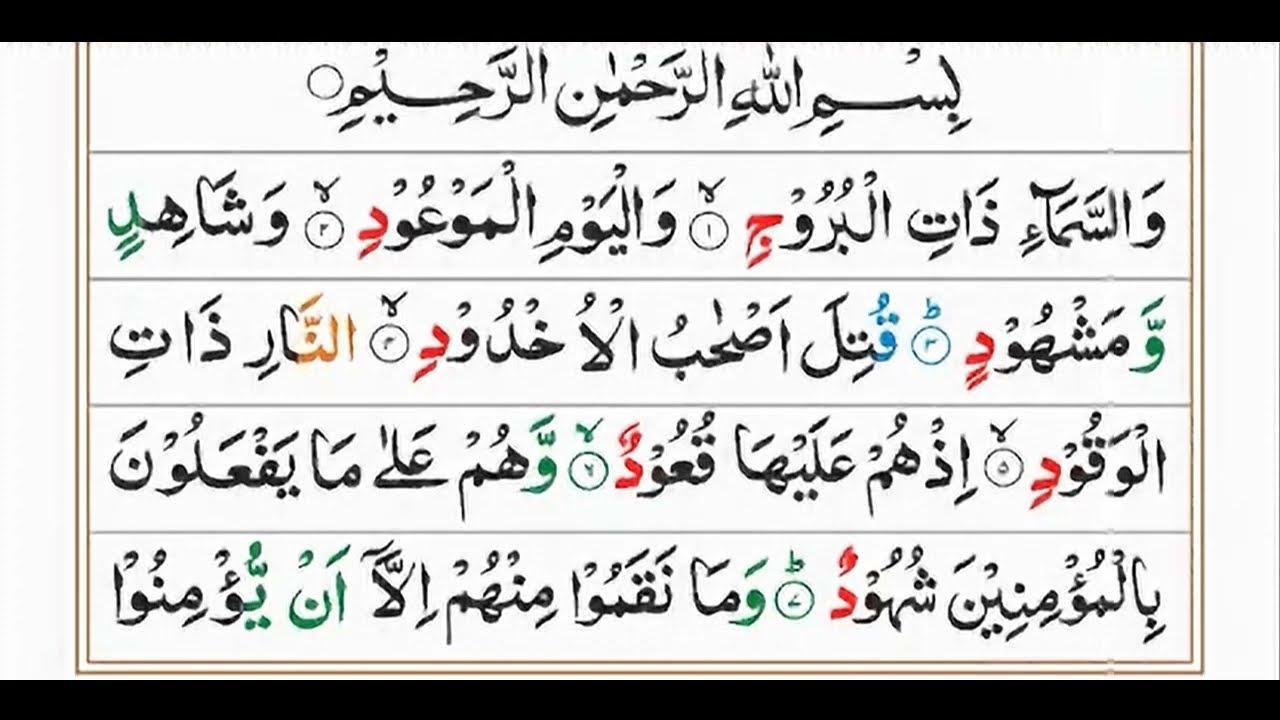 بِسْمِ اللهِ الرَّحْمٰنِ الرَّحِيْمِ ۝
وَالسَّمَآءِ ذَاتِ الْبُرُوْجِ ۙ﴿۱﴾ وَالْيَوْمِ الْمَوْعُوْدِ ۙ﴿۲﴾ وَشَاهِدٍ
وَّ مَشْهُوْدٍ ؕ﴿۳﴾ قُتِلَ اَصْحٰبُ الْاُخْدُوْدِ ۙ﴿۴﴾ النَّارِ ذَاتِ
الْوَقُوْدِ ۙ﴿۵﴾ اِذْ هُمْ عَلَيْهَا قُعُوْدٌ ۙ﴿۶﴾ وَّ هُمْ عَلٰى مَا يَفْعَلُوْنَ
بِالْمُؤْمِنِيْنَ شُهُوْدٌ ؕ﴿۷﴾ وَمَا نَقَمُوْا مِنْهُمْ اِلَّاۤ اَنْ يُّؤْمِنُوْا